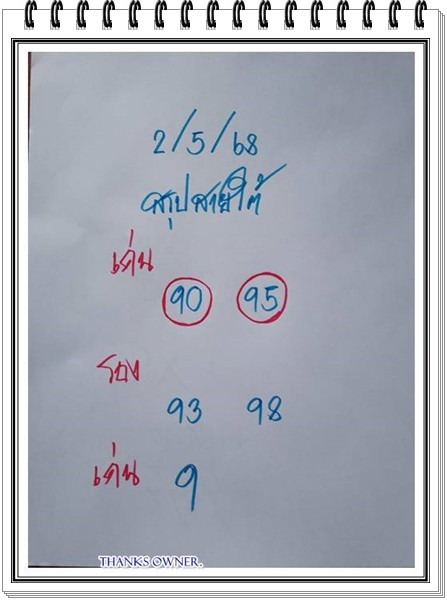 2/5/68
สรุปสายใต้
เด่น
90 95
รอง
93 98
เด่น 9
THANKS OWNER.